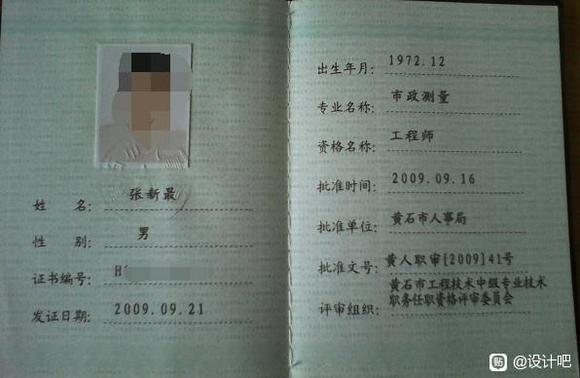 姓 名： 张新最
性 别： 男
证书编号： H
发证日期： 2009.09.21
出生年月： 1972.12
专业名称： 市政测量
资格名称： 工程师
批准时间： 2009.09.16
批准单位： 黄石市人事局
批准文号： 黄人职审[2009]41号
黄石市工程技术中级专业技术
评审组织： 职务任职资格评审委员会
贴 @设计吧